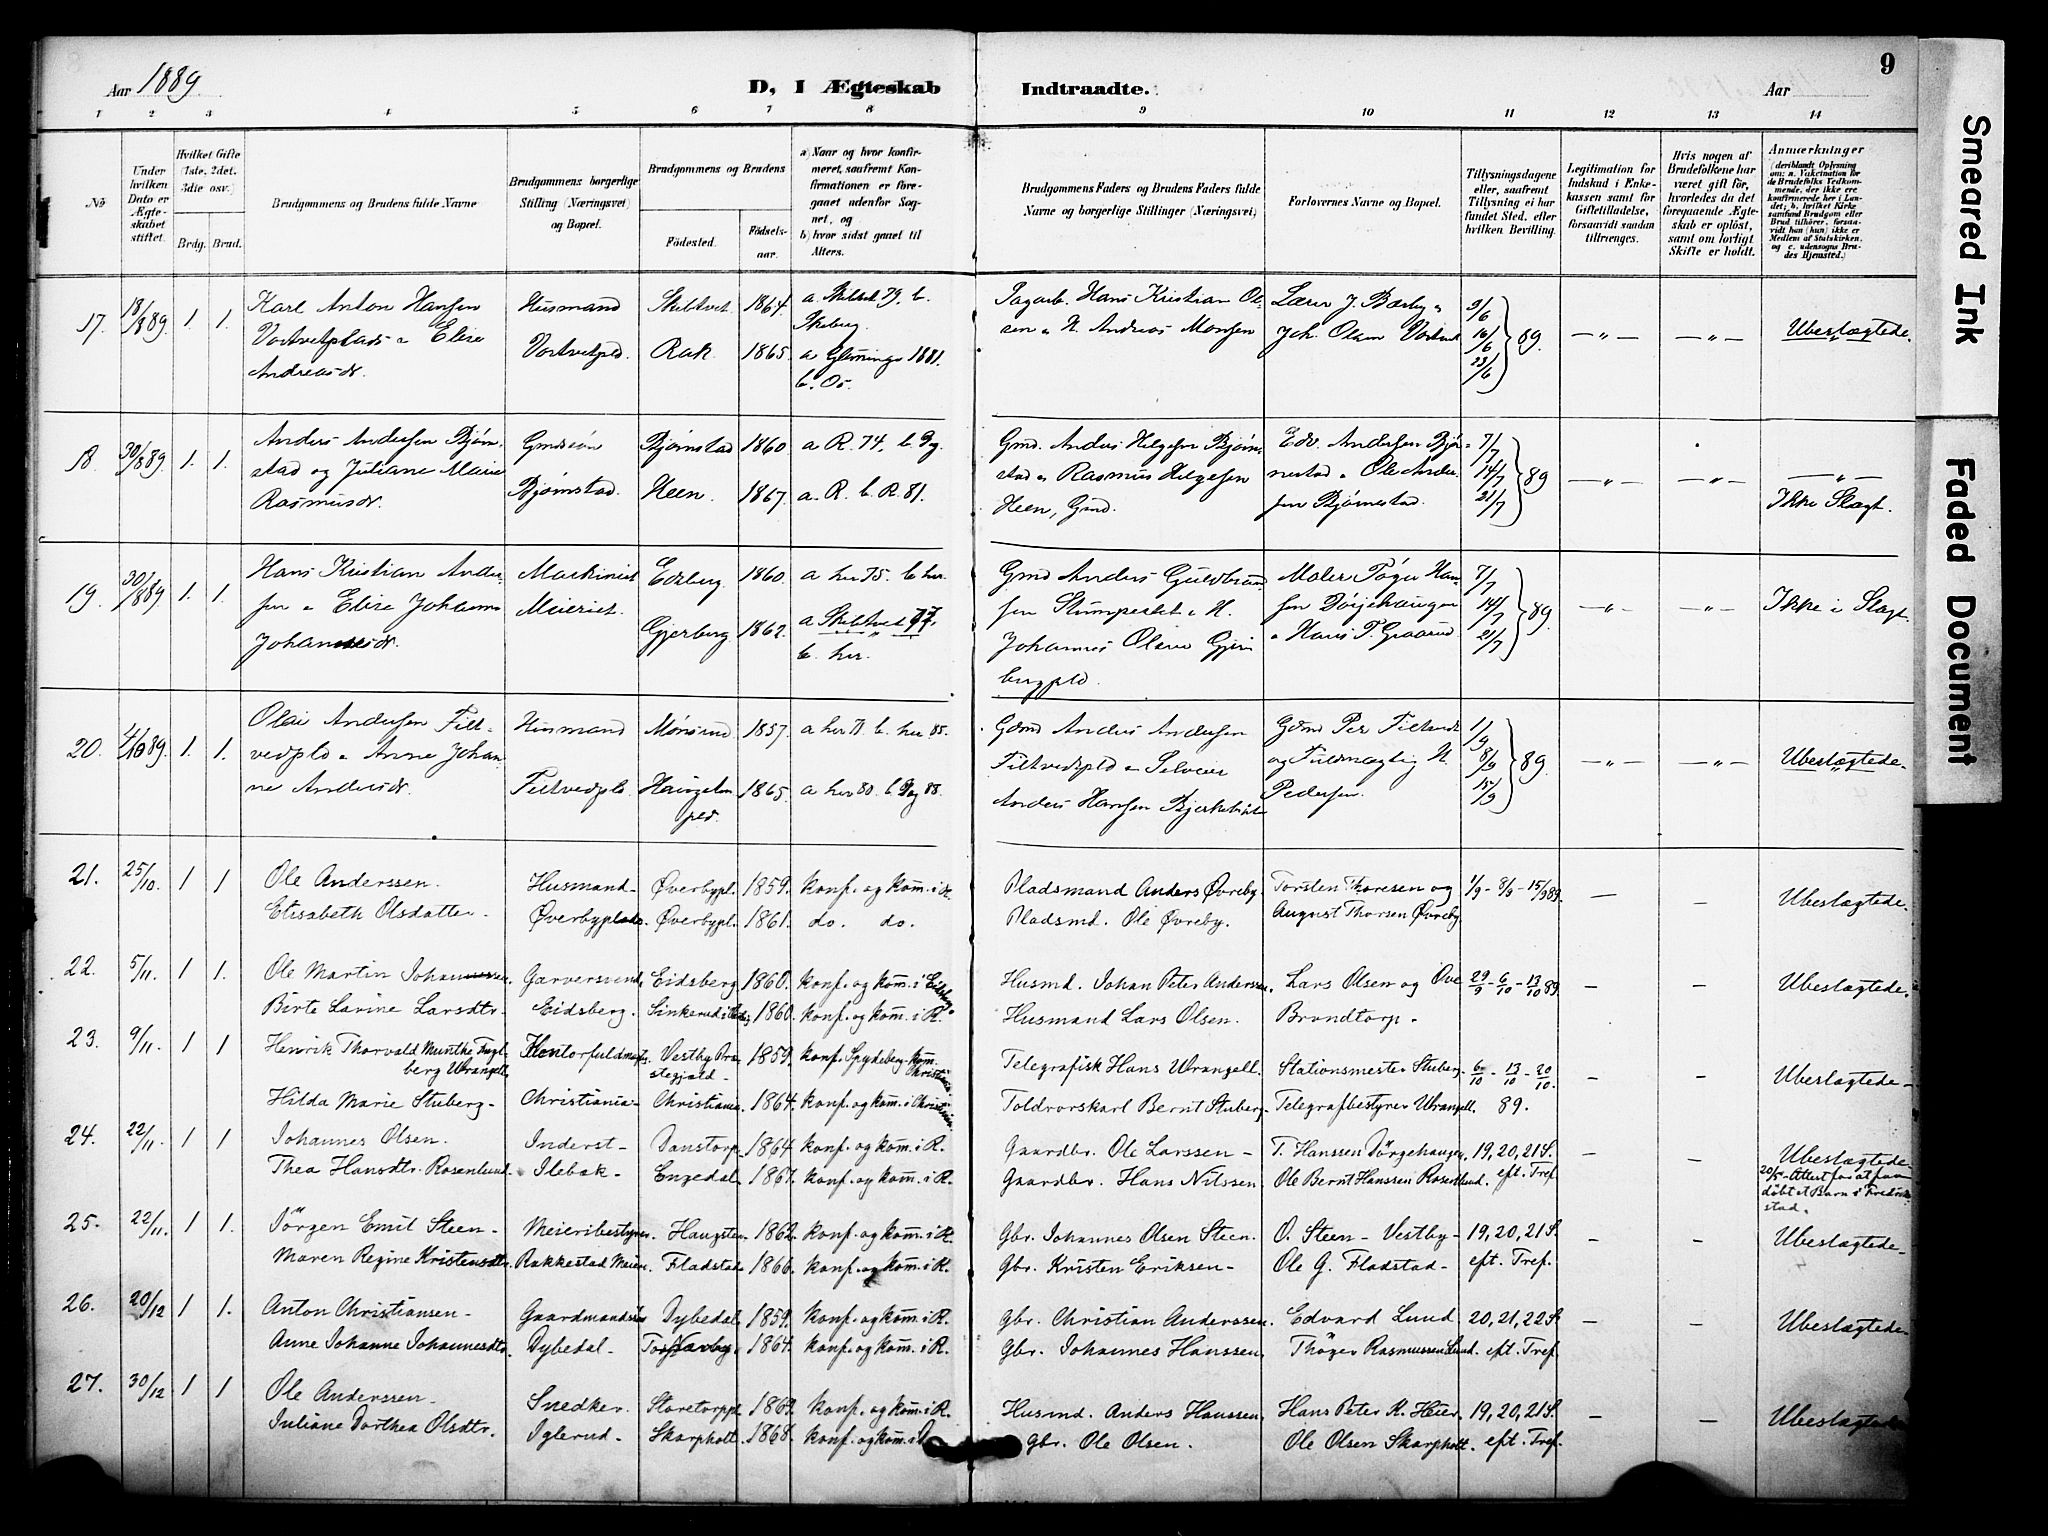 Aar 1889
D, I Ægteskab Indtraadte.
Aar
9
1 2 3 4 5 6 7 8 9 10 11 12 13 14
No
Under hvilken Dato er Ægteskabet stiftet.
Hvilket Gifte (1ste, 2det, 3die osv.)
Brdg. Brud.
Brudgommens og Brudens fulde Navne
Brudgommens borgerlige Stilling (Næringsvei) og Bopæl.
Brudgommens og Brudens
Fødested.
Fødselsaar.
a) Naar og hvor konfirmeret, saafremt Konfirmationen er foregaaet udenfor Sognet, og
b) hvor sidst gaaet til Alters.
Brudgommens Faders og Brudens Faders fulde Navne og borgerlige Stillinger (Næringsvei)
Forlovernes Navne og Bopæl.
Tillysningsdagene eller, saafremt Tillysning ei har fundet Sted, efter hvilken Bevilling.
Legitimation for Indskud i Enkekassen samt for Giftetilladelse, forsaavidt saadan tiltrænges.
Hvis nogen af Brudefolkene har været gift før, hvorledes da det foregaaende Ægteskab er opløst, samt om lovligt Skifte er holdt.
Anmærkninger
(deriblandt Oplysning om: a. Vakcination for de Brudefolks Vedkommende, der ikke ere konfirmerede her i Landet; b, hvilket Kirkesamfund Brudgom eller Brud tilhører, forsaavidt han (hun) ikke er Medlem af Statskirken, og c. udensogns Brudes Hjemsted.)
17. 18/8 89. 1. 1. Karl Anton Hansen Husmand Skibtvet 1864 a Skibtvet 79. b. Hans Kristian Ol- Lærer J. Bærby " 2/6
Vortvetplads " Elise Vortvetpld. Rak. 1865. a Glemminge 1881. sen " H. Andreas Monsen Joh. Olsen 16/6 89. — " — — " — Ubeslægtede.
Andreasdr. b. Os. 23/6
18. 30/8 89. 1. 1. Anders Andersen Bjørn- Gmdssøn Bjørnstad 1860 a R. 74. b. Gmd. Anders Helgesen Bjørn- Edv. Andersen Bjør- 7/7
stad og Juliane Marie Bjørnstad. Heen. 1867. a. R. b. R. 81. stad " Rasmus Helgesen nestad " Ole Ander- 14/7 89 — " — — " — — " —
Rasmusdr. Heen, Gmd. sen Bjørnestad. 21/7 Ikke Slægt.
19. 30/8 89. 1. 1. Hans Kristian Ander- Maskinist Edsberg. 1860. a her 75. b. her. Gmd Anders Guldbrand- Maler Tøger Han- 7/7
sen " Elise Johanne Meieriet. Gjerberg 1862. a Skibtvet 77. sen " H. sen Dørjehaugen 14/7 89. — " — — " — Ikke i Slægt.
Johannesdr. b. her. Johannes Olsen " Hans T. Graarud. 21/7
bergpld.
20. 89. 1. 1. Olai Andersen Filt- Husmand 1857. a her b. her 85. Gdmd Anders Andersen Gdmd Per 1/9
vedpld " Anne Johan- Filtvedpld. 1865. a her 80. b. 88. Filtvedpld " og Fuldmægtig H. 8/9 89. — " — — " — Ubeslægtede.
ne Andersdr. Anders Hansen Pedersen. 15/9
21. 25/10. 1 1 Ole Anderssen. Husmand - Øverbypl. 1859. konf. og kom. i R. Pladsmand Anders Øvreby. Torsten Thoresen og 1/9 - 8/9 - 15/9 89. — — Ubeslægtede.
Elisabeth Olsdatter. Øverbyplads. Øverbypl. 1861. do. do. Pladsmd. Ole Øvreby. August Thorsen Øvreby.
22. 5/11. 1 1. Ole Martin Johannessen. Garversvend, Eidsberg 1860. konf. og kom. i Eidsberg. Husmd. Johan Peter Anderssen. Lars Olsen og Ove 29/9 - 6/10 - 13/10 89. — — Ubeslægtede.
Birte Larine Larsdtr. Eidsberg. 1860. konf. og kom. i R. Husmand Lars Olsen. Brundtorp.
23. 9/11. 1 1 Henrik Thorvald Munthe Fugl- Kontorfuldmægt. Vestby Præ- 1859. konf. Spydeberg - kom. Telegrafisk Hans Wrangell. Stationsmester Stuberg. 6/10 - 13/10 - 20/10. — — Ubeslægtede -
berg Wrangell. stegjæld - Christiania.
Hilda Marie Stuberg - Christiania - Christiania. 1864. konf. og kom. i Christiania. Toldrorskarl Bernt Stuberg. Telegrafbestyrer Wrangell. 89.
24. 22/11. 1 1 Johannes Olsen. Inderst - Danstorp 1864 konf. og kom. i R. Gaardbr. Ole Larssen - T. Hanssen Dörgehaugen. 19, 20, 21 S. — — Ubeslægtede.
Thea Hansdtr. Rosenlund. Ilebæk - Engedal. 1867. konf. og kom. i R. Gaardbr. Hans Nilssen Ole Bernt Hanssen Rosenlund. eft. Tref. 20/5 - Attest for at faa
døbt et Barn i Fredrik-
stad.
25. 22/11. 1 1. Jörgen Emil Steen - Meieribestyrer. Haugsten. 1862. konf. og kom. i R. Gbr. Johannes Olsen Steen. O. Steen - Vestby - 19, 20, 21 S. — — Ubeslægtede.
Maren Regine Kristensdtr. Rakkestad Meieri. Fladstad 1866. konf. og kom. i R. Gbr. Kristen Eriksen - Ole G. Fladstad - eft. Tref.
26. 20/12 1 1. Anton Christiansen - Gaardmandssøn Dybedal. 1859. konf. og kom. i R. Gbr. Christian Anderssen. Edvard Lund 20, 21, 22 S. — — Ubeslægtede.
Anne Johanne Johannesdtr. Dybedal - Narby. 1864. konf. og kom. i R. Gbr. Johannes Hanssen. Thöger Rasmussen Lund. eft. Tref.
27. 30/12 1 1 Ole Anderssen. Snedker. Storetorppl. 1869. konf. og kom. i R. Husmd. Anders Hanssen. Hans Peter K. Heier. 19, 20, 21 S. — — Ubeslægtede
Juliane Dorthea Olsdtr. Iglerud - Skarpholt. 1868. konf. og kom. i Gbr. Ole Olsen. Ole Olsen Skarpholt. eft. Tref.
Smeared Ink
Faded Document